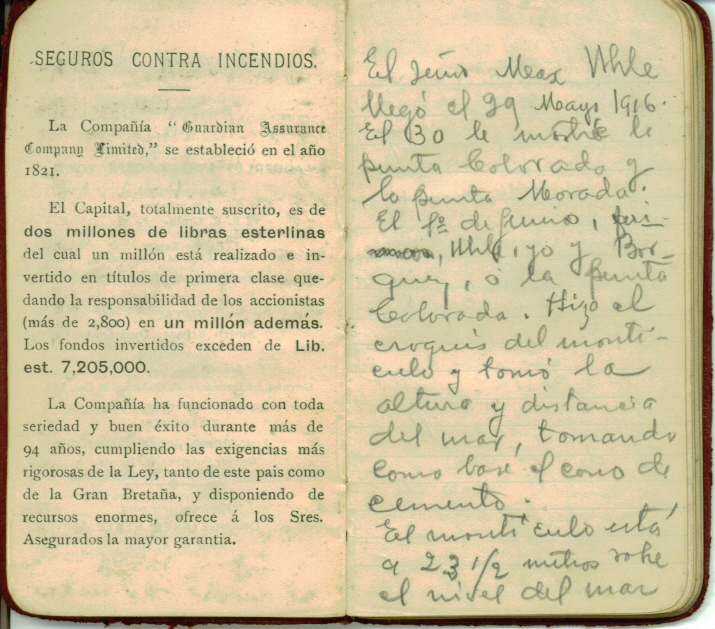 SEGUROS CONTRA INCENDIOS.
La Compañía “Guardian Assurance
Company Limited,” se estableció en el año
1821.
El Capital, totalmente suscrito, es de
dos millones de libras esterlinas
del cual un millón está realizado e in-
vertido en títulos de primera clase que-
dando la responsabilidad de los accionistas
(más de 2,800) en un millón además.
Los fondos invertidos exceden de Lib.
est. 7,205,000.
La Compañía ha funcionado con toda
seriedad y buen éxito durante más de
94 años, cumpliendo las exigencias más
rigorosas de la Ley, tanto de este pais como
de la Gran Bretaña, y disponiendo de
recursos enormes, ofrece á los Sres.
Asegurados la mayor garantia.
El Señor Max Uhle
llegó el 29 Mayo 1916.
El 30 le mostré la
punta Colorado y
la punta Morada.
El 1º de junio, fui-
mos, Uhle, yo y Bor-
quez, á la punta
Colorada. Hizo el
croquis del montí-
culo y tomó la
altura y distancia
del mar, tomando
como base el cono de
cemento.
El montículo está
a 23 1/2 metros sobre
el nivel del mar